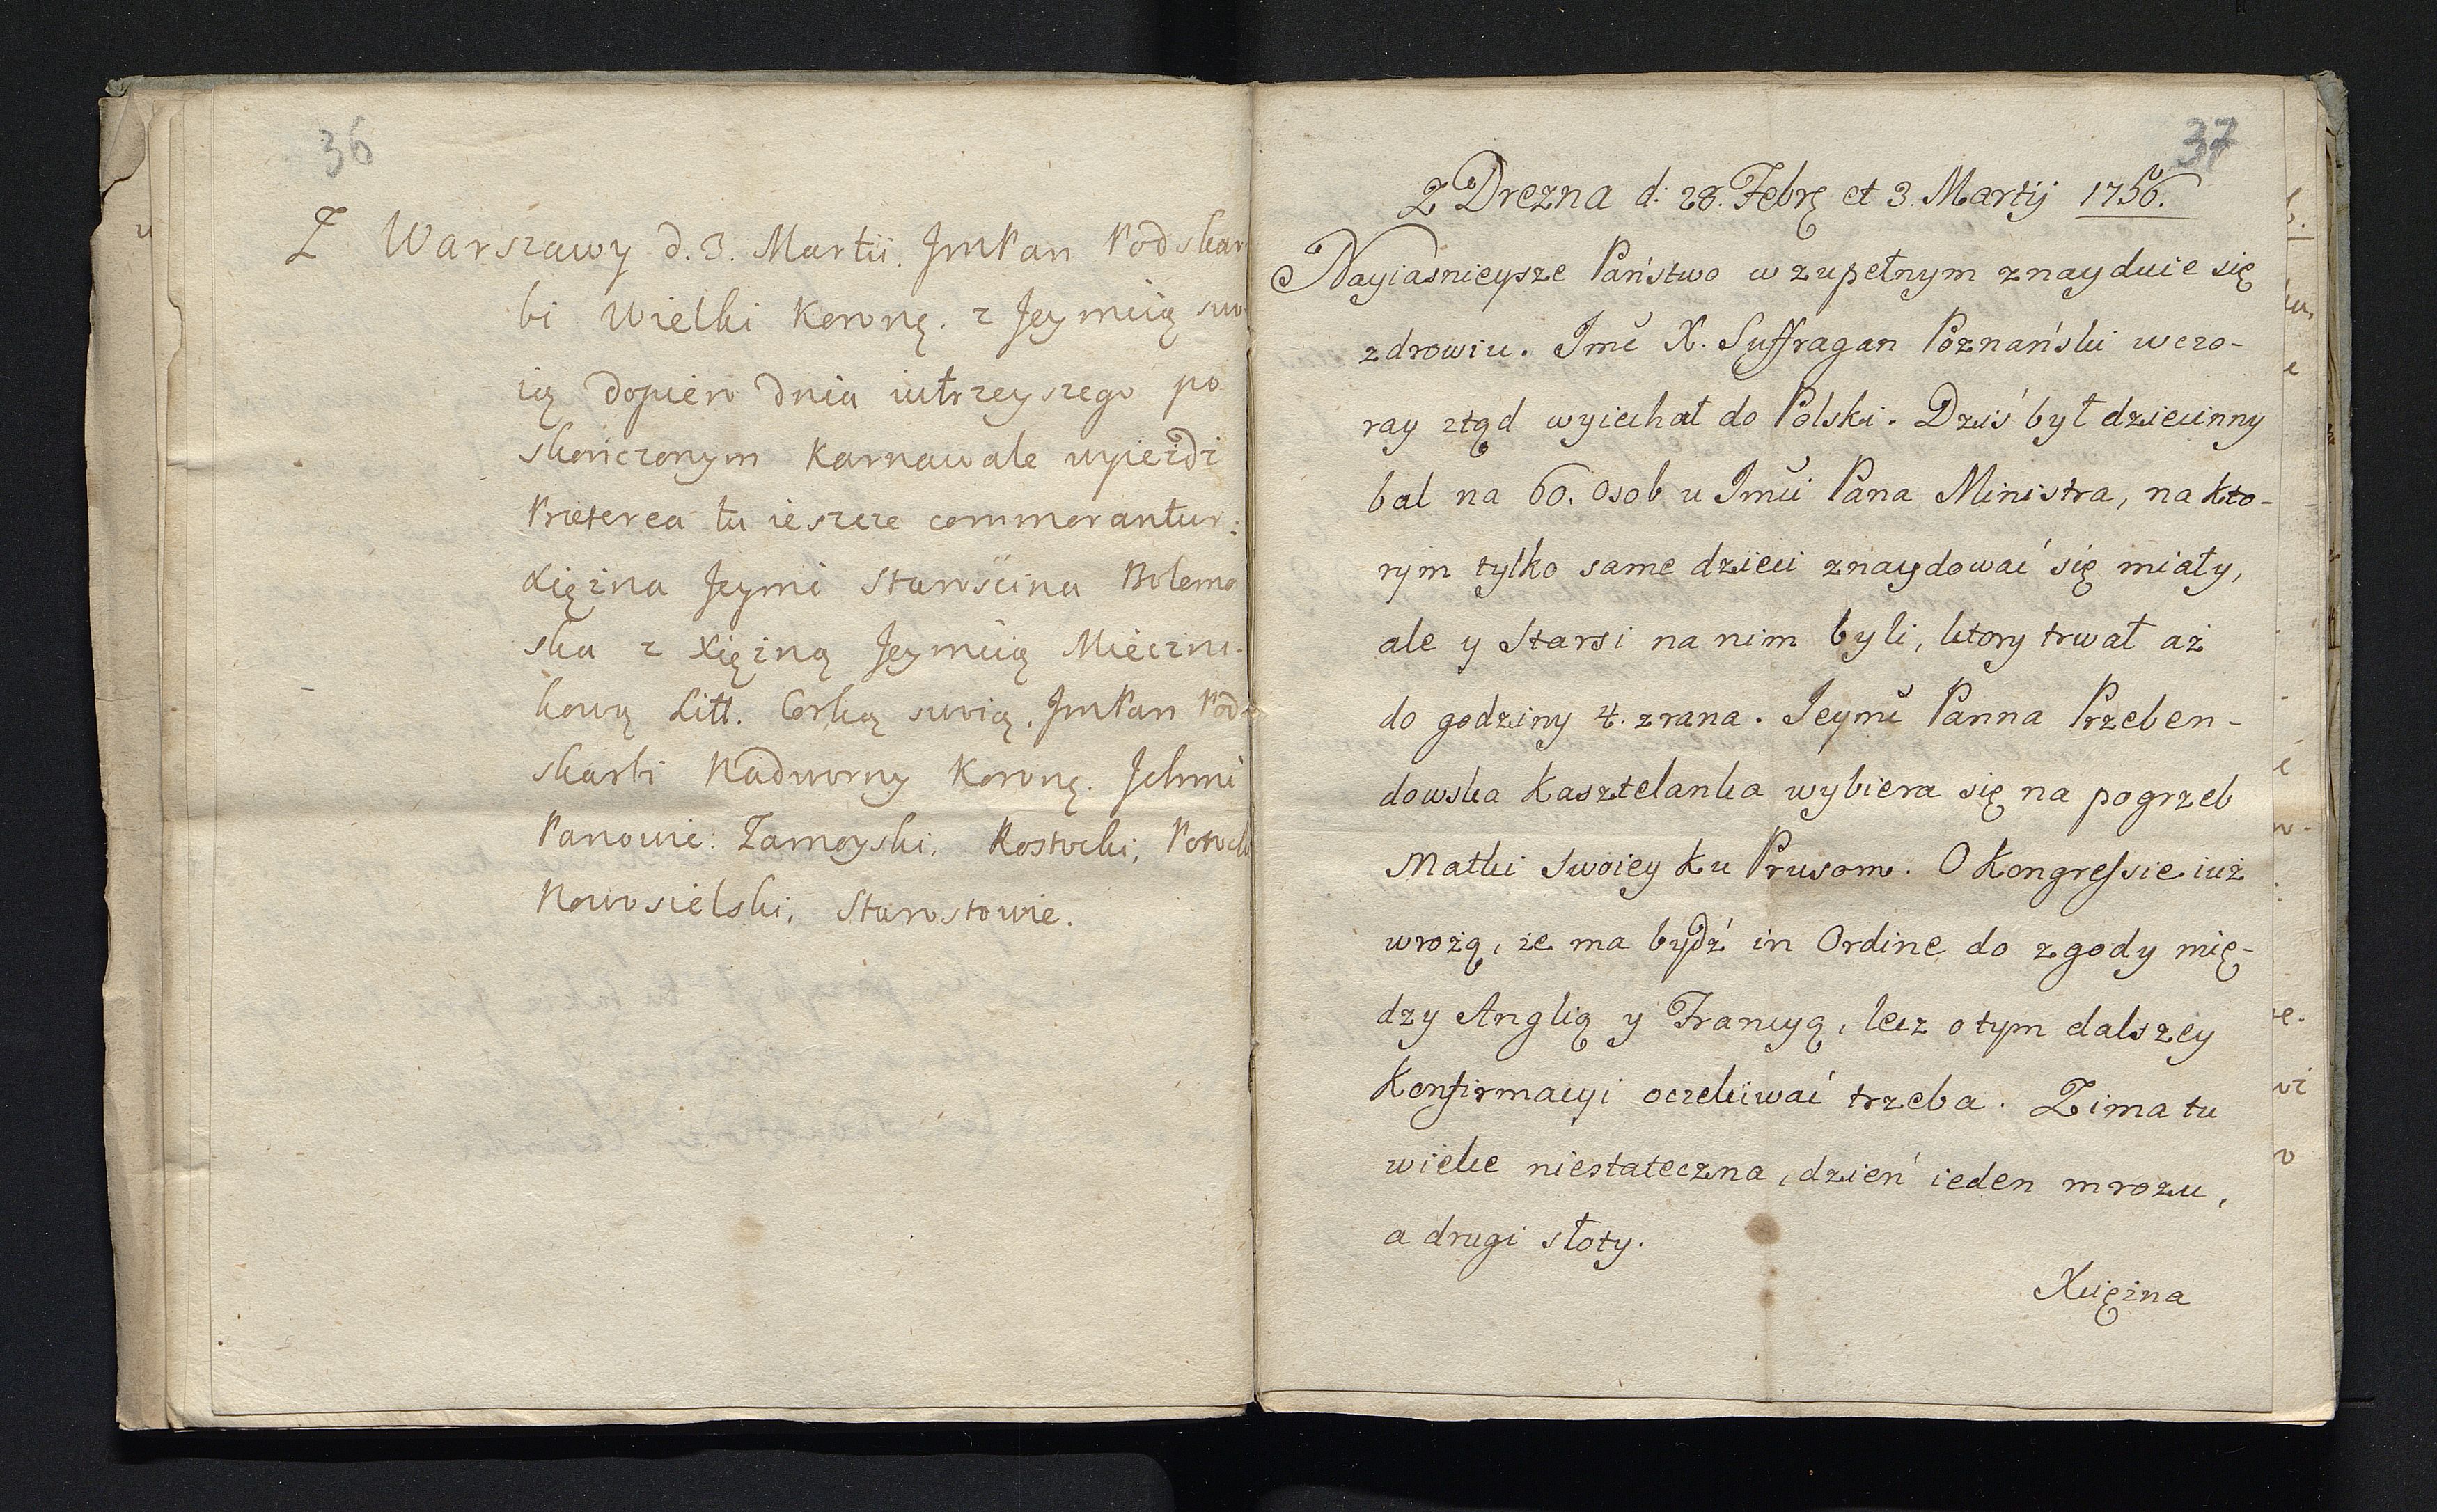 36
Z Warszawy d. 3. Martii. JmPan Podskar
bi Wielki Koronę. z Jeymcią swo
ią dopiero dnia iutrzeyszego po
skończonym Karnawale wyieżdż
Præterea tu ieszcze commorantur:
Xiężna Jeymć Starościna Bolemo
ska z Xiężną Jeymcią Mieczni-
kową Litt. Corką swoią. JmPan Pod
skarbi Nadworny Koronę. Ichmć
Panowie: Zamoyski, Rostocki, Potocki
Nowosielski, Starostowie.
37
Z Drezna d: 28. Febrę et 3. Martij 1756.
Nayiasnieysze Państwo w zupełnym znayduie się
zdrowiu. Jmć X. Suffragan Poznański wczo-
ray ztąd wyiechał do Polski. Dziś był dziecinny
bal na 60. osob u Jmći Pana Ministra, na kto-
rym tylko same dzieci znaydować się miały,
ale y Starsi na nim byli, ktory trwał aż
do godziny 4. zrana. Jeymć Panna Przeben-
dowska Kasztelanka wybiera się na pogrzeb
Matki Swoiey ku Prusom. O Kongressie iuż
wrożą, że ma bydź in Ordine do zgody mię-
dzy Anglią y Francyą, lecz o tym dalszey
Konfirmacyi oczekiwać trzeba. Zima tu
wielce niestateczna, dzień ieden mrozu,
a drugi słoty.
Xiężna